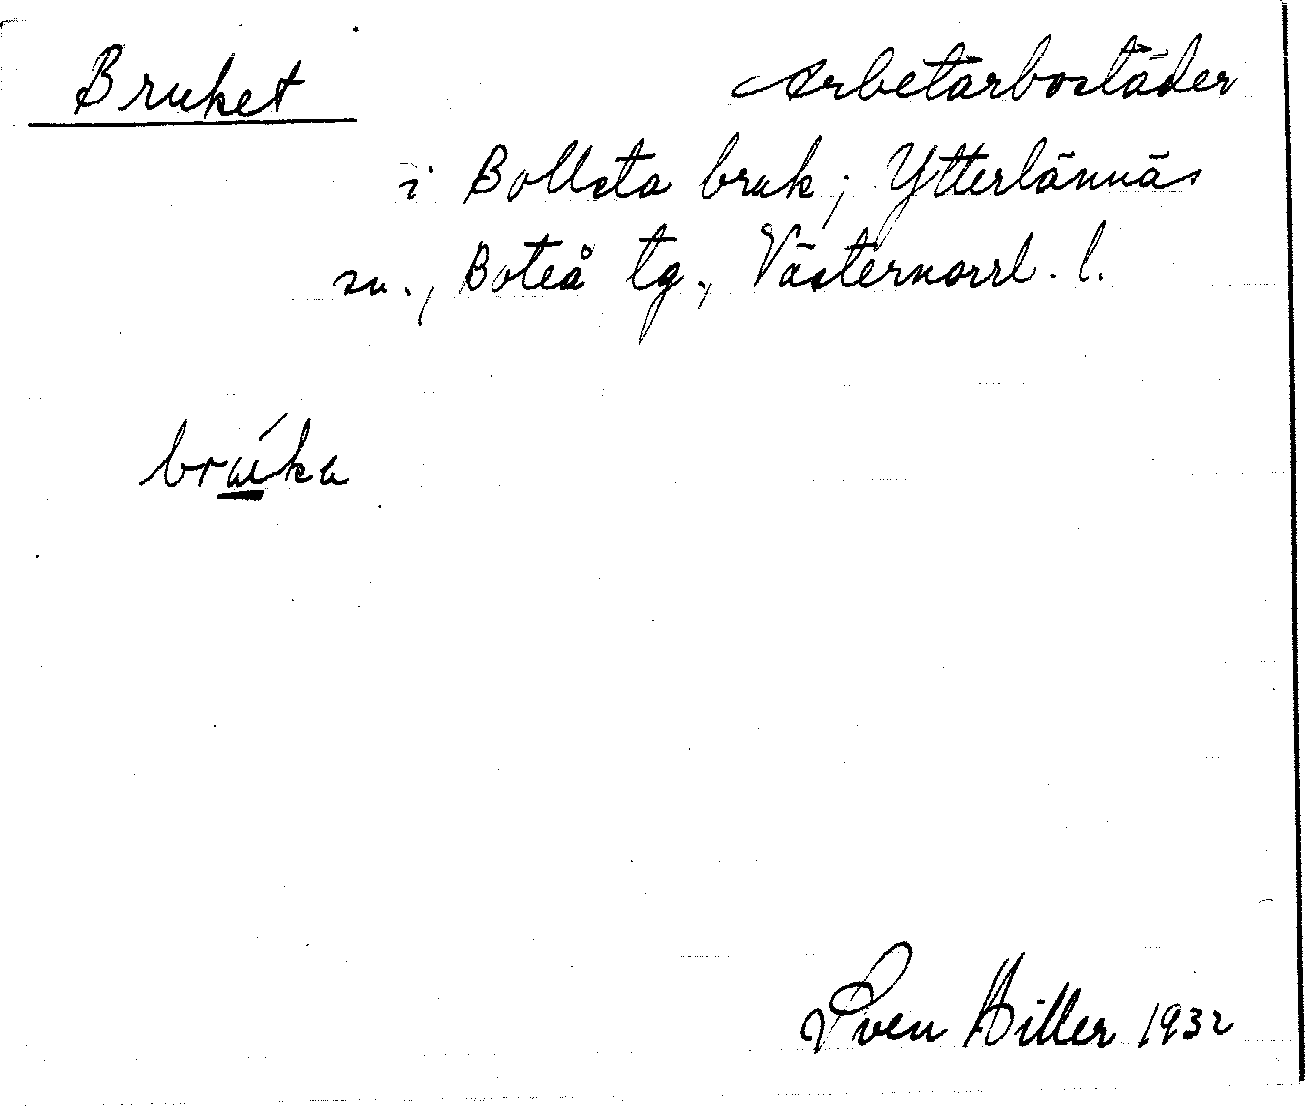 Bruket
Arbetarbostäder
i Bollsta bruk; Ytterlännäs
sn., Boteå tg., Västernorrl. l.
brúka
Sven Hiller 1932